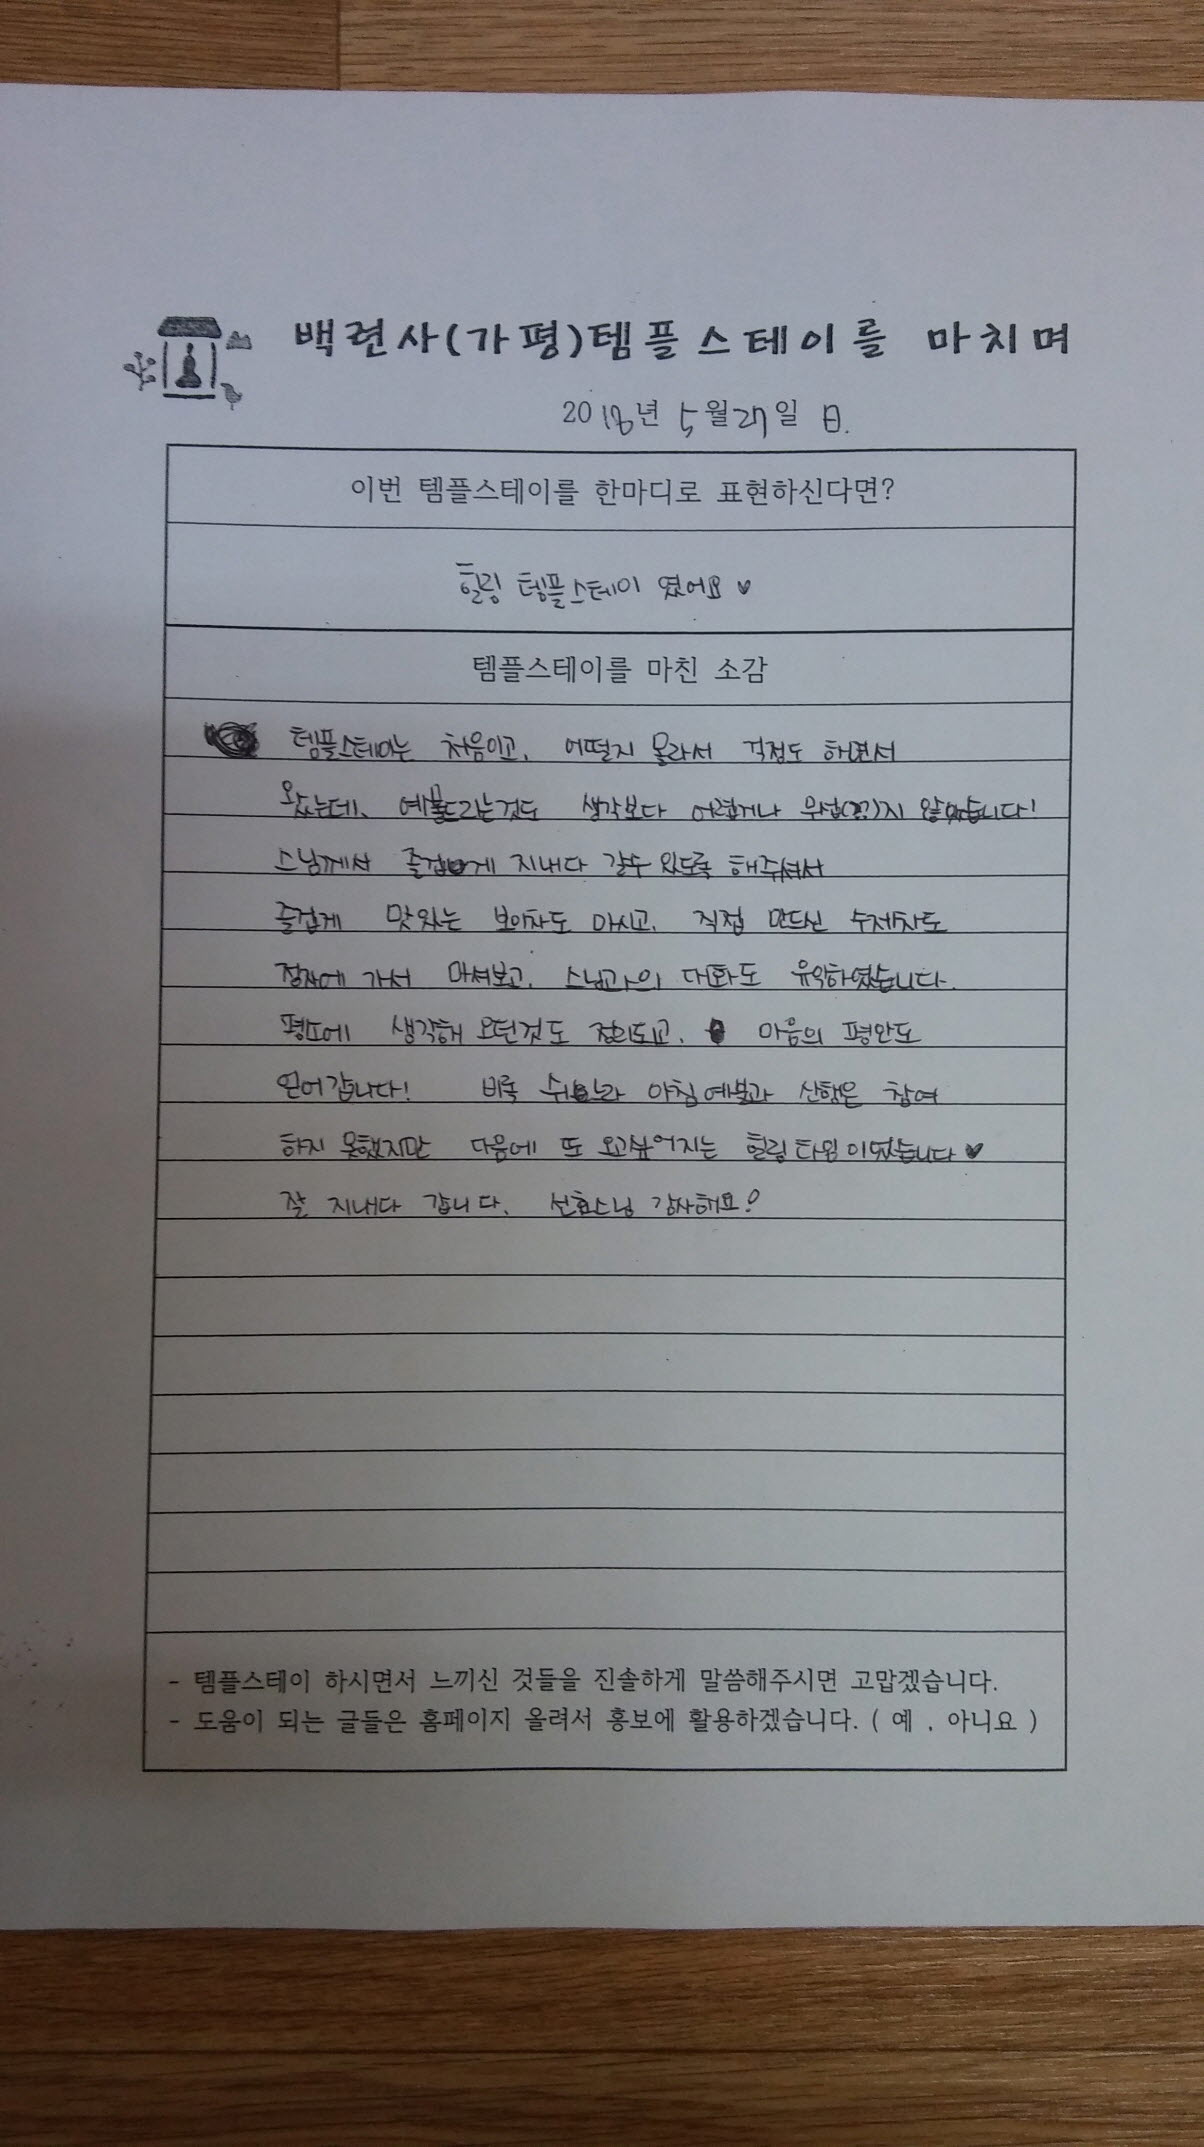 백련사(가평)템플스테이를 마치며
2018년 5월 27일 日.
이번 템플스테이를 한마디로 표현하신다면?
힐링 템플스테이 였어요 ♥
템플스테이를 마친 소감
템플스테이는 처음이고, 어떨지 몰라서 걱정도 하면서
왔는데, 예불드리는것도 생각보다 어렵거나 무섭(??)지 않았습니다!
스님께서 즐겁게 지내다 갈수 있도록 해주셔서
즐겁게 맛있는 보이차도 마시고, 직접 만드신 수제차도
정자에 가서 마셔보고, 스님과의 대화도 유익하였습니다.
평소에 생각해 오던것도 정리되고, 마음의 평안도
얻어갑니다! 비록 쉬느라 아침예불과 산행은 참여
하지 못했지만 다음에 또 오고싶어지는 힐링타임이었습니다 ♥
잘 지내다 갑니다. 선효스님 감사해요!
- 템플스테이 하시면서 느끼신 것들을 진솔하게 말씀해주시면 고맙겠습니다.
- 도움이 되는 글들은 홈페이지 올려서 홍보에 활용하겠습니다. ( 예 , 아니요 )